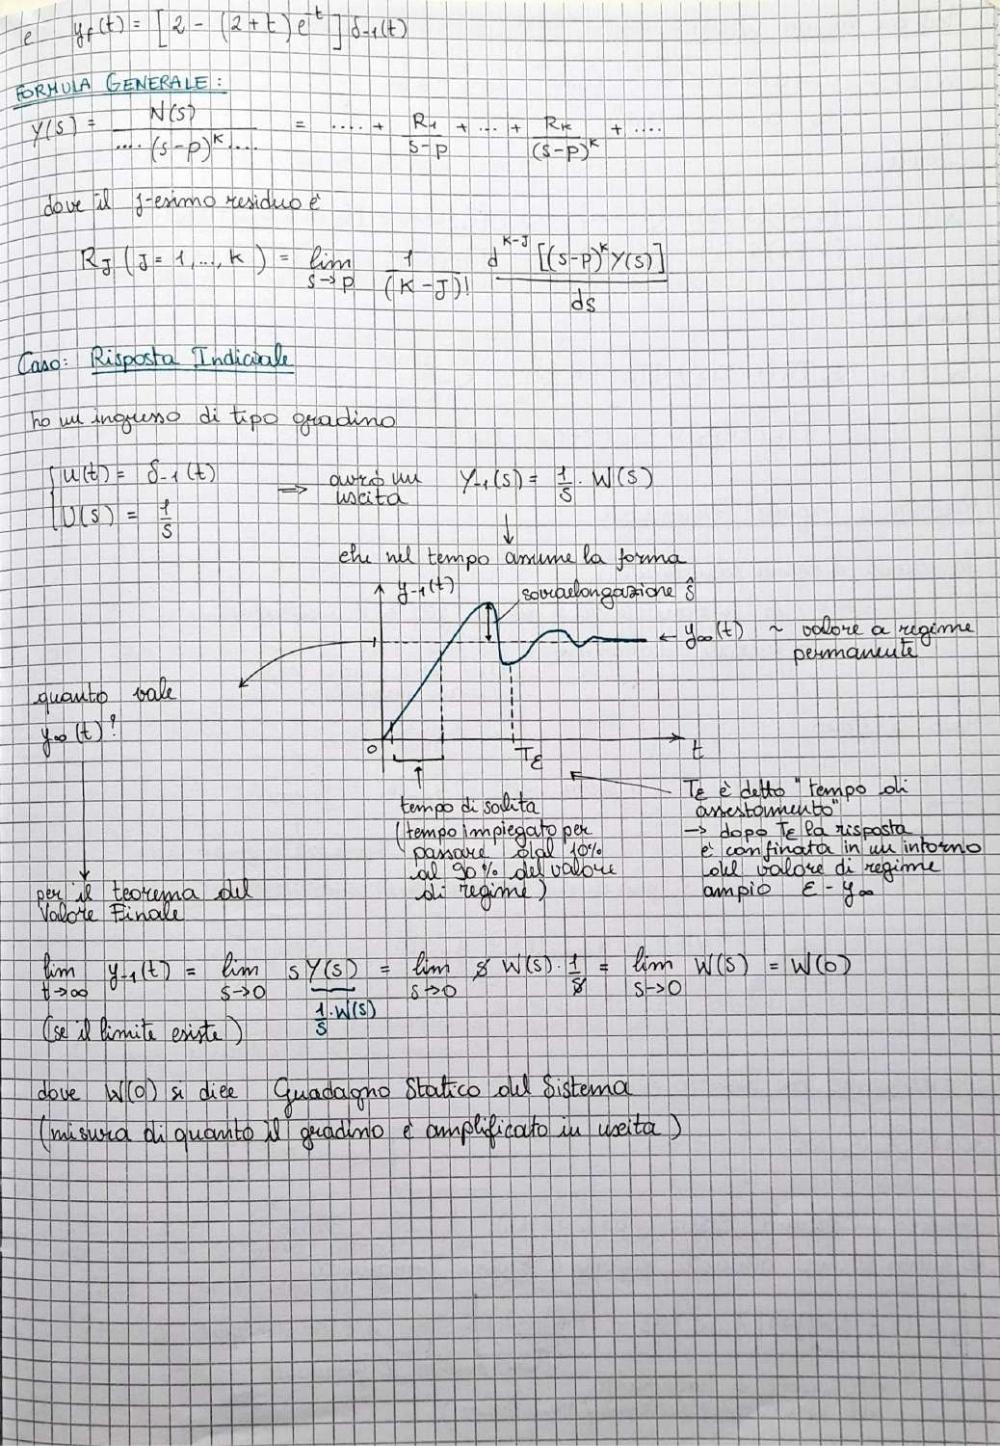 e y_f(t) = [2 - (2+t)e^-t] δ_-1(t)
FORMULA GENERALE:
Y(s) = N(s) / .... (s-p)^K .... = .... + R_1 / s-p + ... + R_K / (s-p)^K + ....
dove il J-esimo residuo è
R_J (J = 1, ..., K) = lim s→p 1 / (K-J)! d^K-J [(s-p)^K Y(s)] / ds
Caso: Risposta Indiciale
ho un ingresso di tipo gradino
u(t) = δ_-1(t)
U(s) = 1/s
⇒ avrò un uscita Y_-1(s) = 1/s · W(s)
↓
che nel tempo assume la forma
y_-1(t)
sovraelongazione ŝ
← y_∞(t) ~ valore a regime
permanente
quanto vale
y_∞(t)?
0
T_ε
t
tempo di salita
(tempo impiegato per
passare dal 10%
al 90% del valore
di regime)
Tε è detto "tempo di
assestamento"
→ dopo Tε la risposta
è confinata in un intorno
del valore di regime
ampio ε - y_∞
per il teorema del
Valore Finale
lim t→∞ y_-1(t) = lim s→0 s Y(s) = lim s→0 s W(s) · 1/s = lim s→0 W(s) = W(0)
1/s · W(s)
(se il limite esiste)
dove W(0) si dice Guadagno Statico del Sistema
(misura di quanto il gradino è amplificato in uscita)